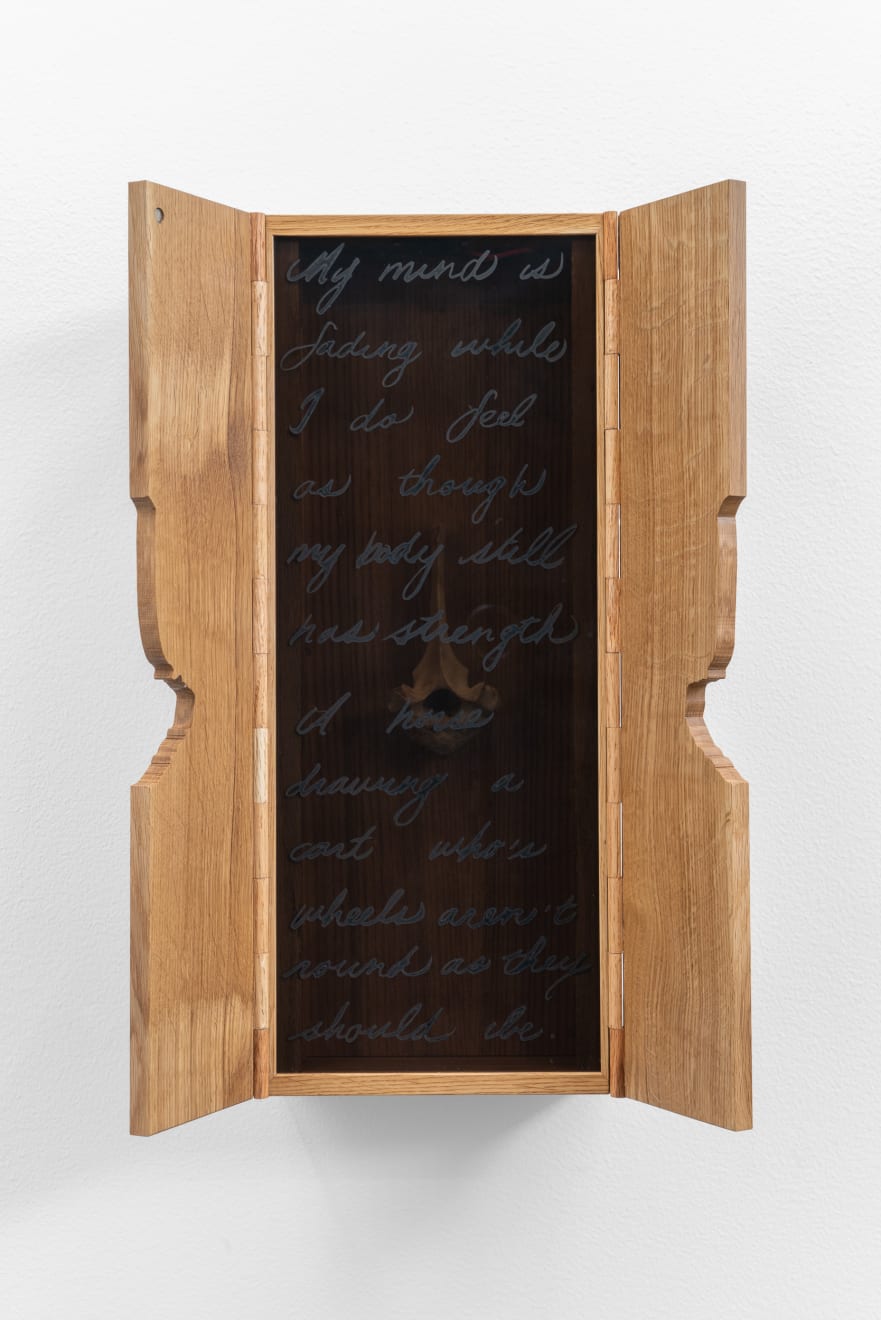 My mind is
fading while
I do feel
as though
my body still
has strength
A horse
drawing a
cart who's
wheels aren't
round as they
should be.